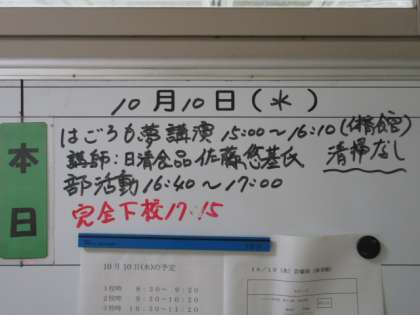 10月10日(水)
本日
はごろも夢講演 15:00～16:10(体育館)
講師:日清食品 佐藤悠基氏 清掃なし
部活動 16:40～17:00
完全下校17:15
10月10日(水)の予定
1校時 8:30～9:20
2校時 9:30～10:20